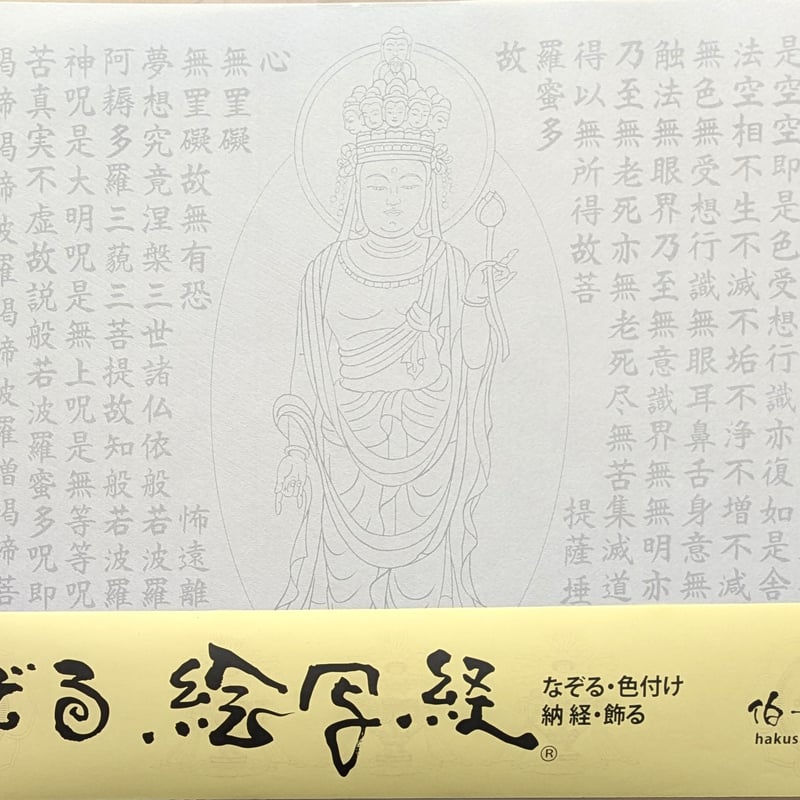 是空空即是色受想行識亦復如是舎
法空相不生不滅不垢不浄不増不減
無色無受想行識無眼耳鼻舌身意無
触法無眼界乃至無意識界無無明亦
乃至無老死亦無老死尽無苦集滅道
得以無所得故菩
提薩埵
羅蜜多
故
心
無罣礙
無罣礙故無有恐
怖遠離
夢想究竟涅槃三世諸仏依般若波羅
阿耨多羅三藐三菩提故知般若波羅
神呪是大明呪是無上呪是無等等呪
苦真実不虚故説般若波羅蜜多呪即
羯諦羯諦波羅羯諦波羅僧羯諦菩
ぞる 絵写経®
なぞる・色付け
納経・飾る
伯
hakus